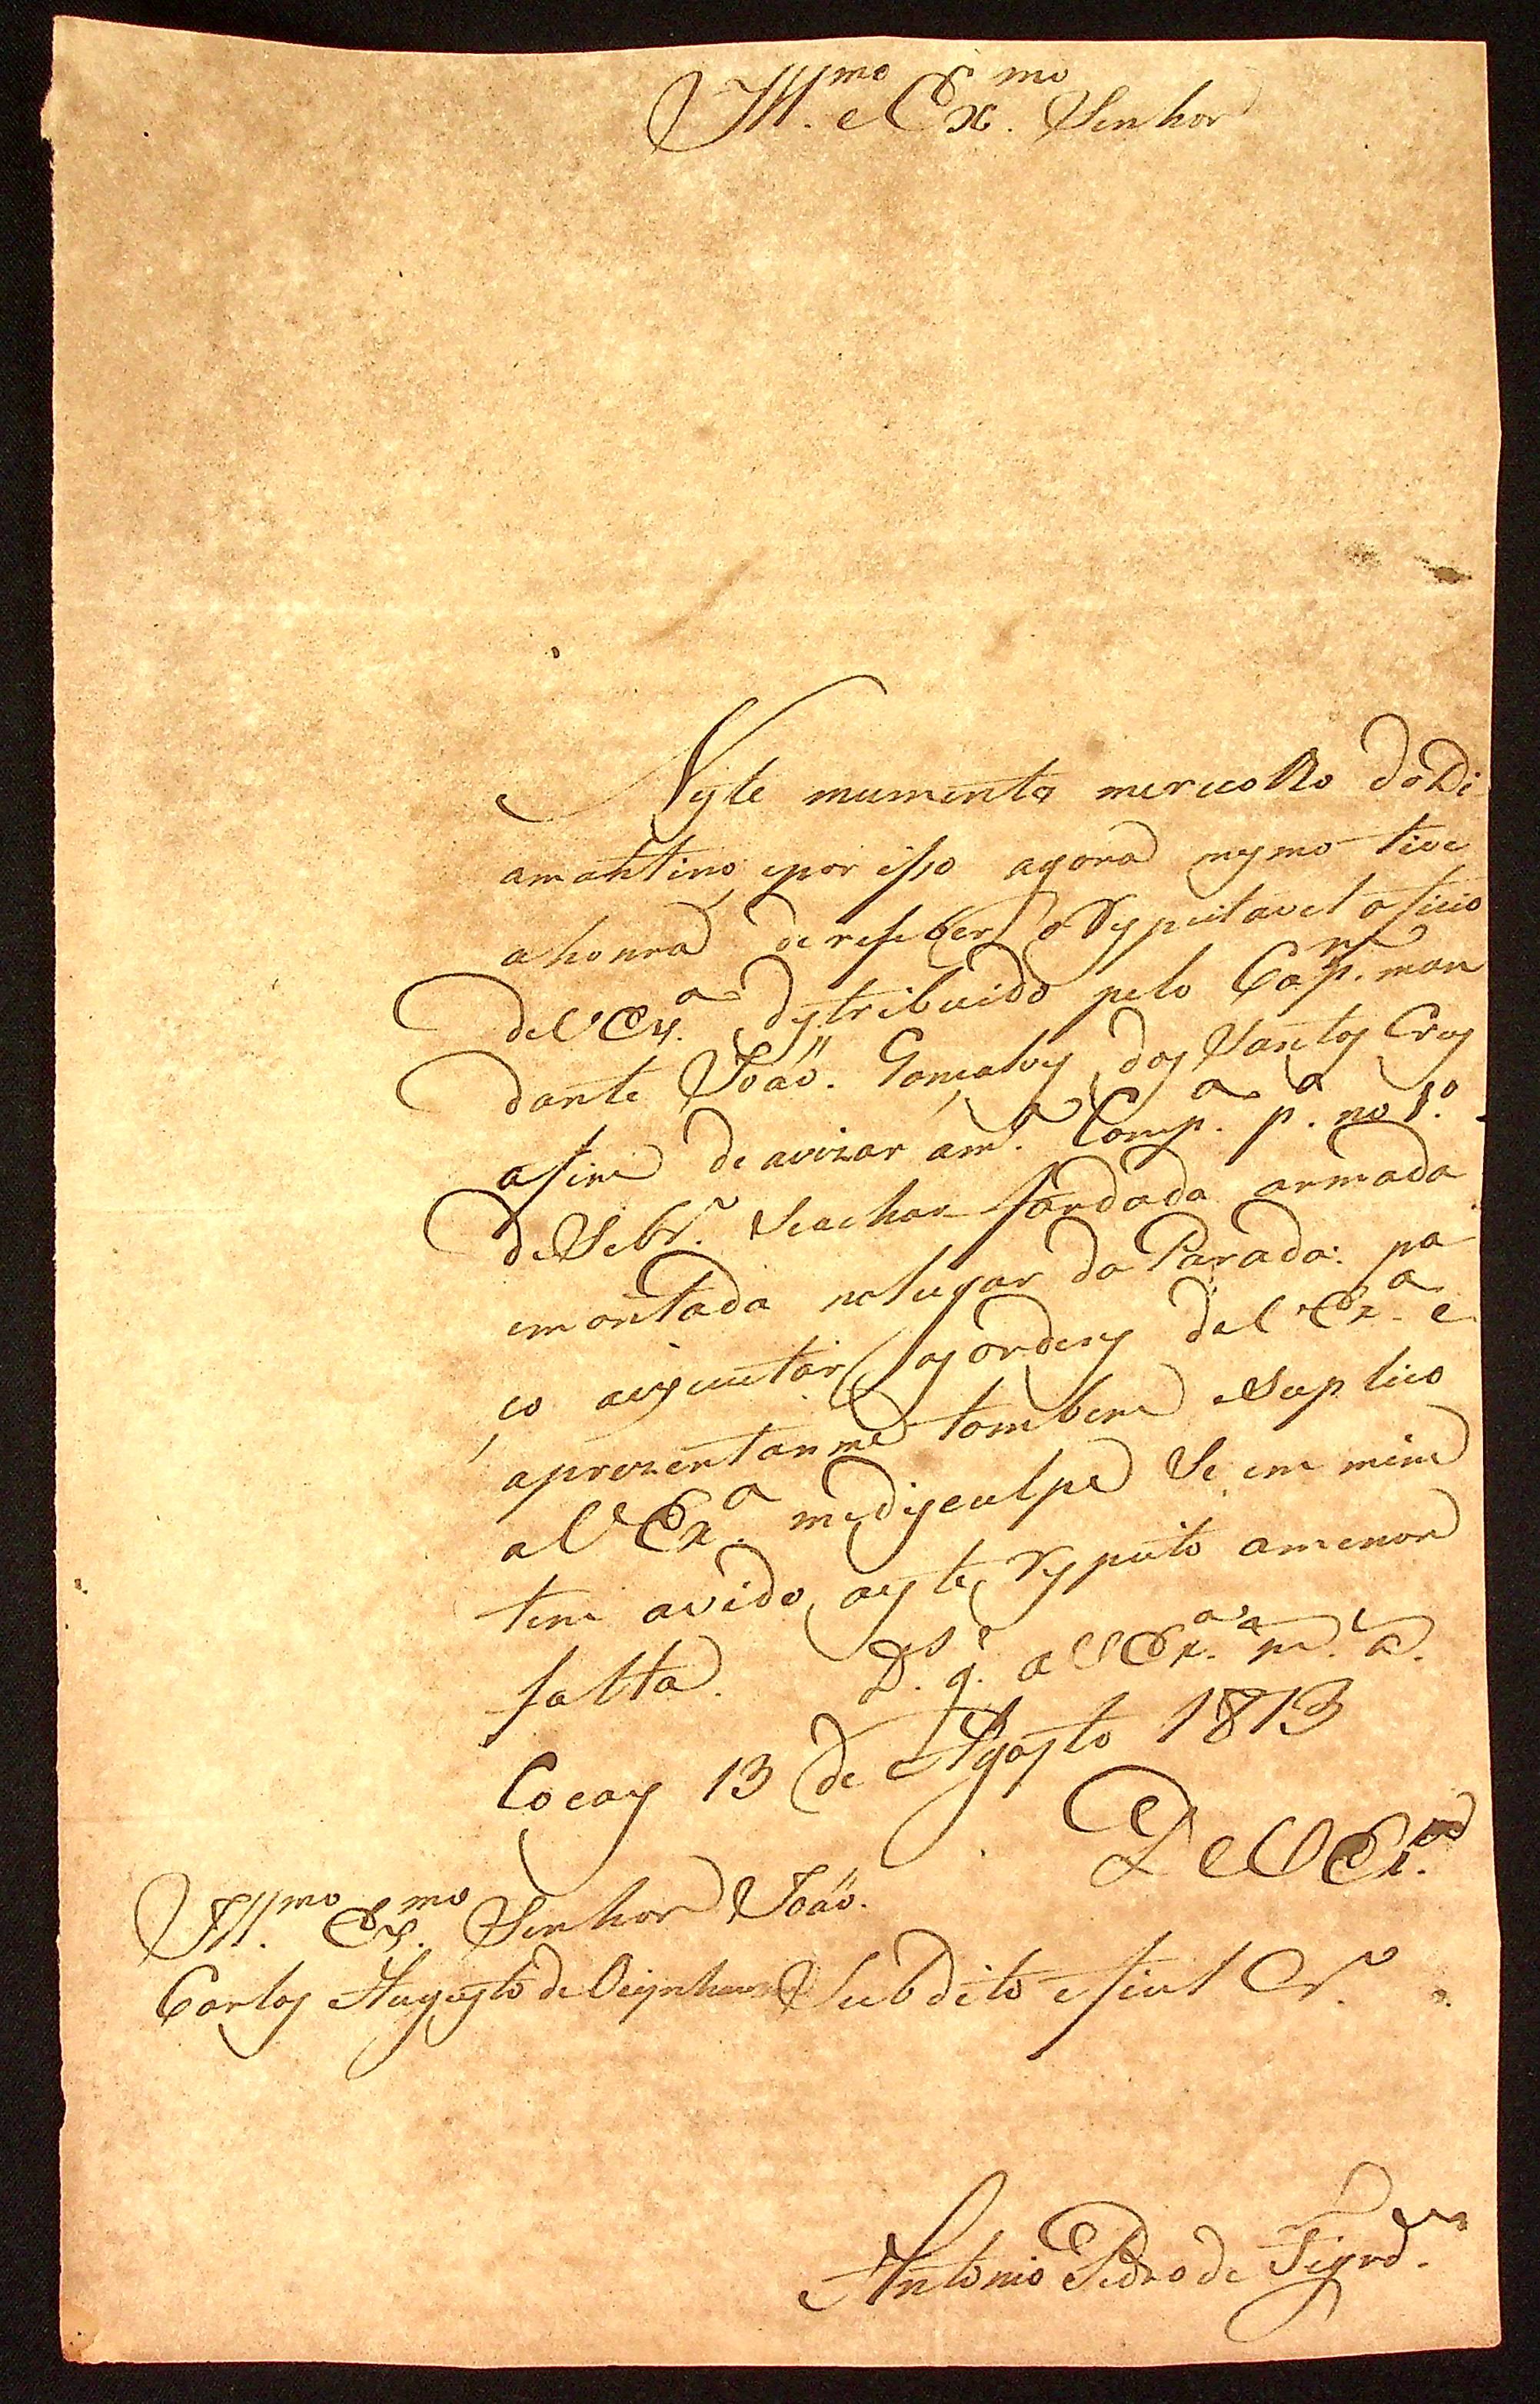 Ill.mo e Ex.mo Senhor
Neste mumento merecolho do Di
amahtino, epor isso agora mesmo tive
ahonra de reseber o Respeitavel oficio
de V Ex.a destribuido pelo Cap.m man
dante João. Gomçalves dos Santos Cruz
afim de avizar am.a Comp.a p.a no 1.o
de Sebr.o Seachar fardada armada
emontada nolugar da Parada: pa
as ordens de V Ex.a e
aprezentarme tambem eSuplico
a V Ex.a medisculpe Se em mim
tem avido, aeste, Respeito amenor
falta. D.s g.e a V Ex.a m.s a.s
Cocaes 13 de Agosto 1813
De V Ex.a
Ill.mo Ex.mo Senhor João.
Carlos Augusto de Oeynhausen Subdito efiel Cr.o
Antonio Pedro de Figrd.o